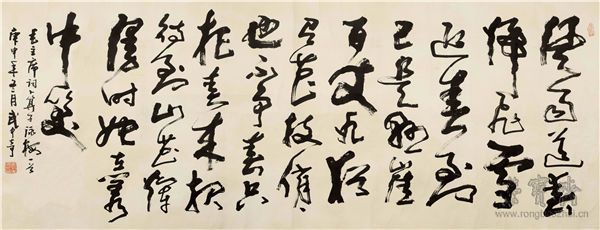 風雨送春
歸飛雪
迎春到
已是懸崖
百丈冰猶
有花枝俏俏
也不爭春只
把春來報
待到山花爛
漫時她在叢
中笑
毛主席詞卜算子詠梅一首
庚申年十月武中奇
榮寶齋
www.rongbaozhai.cn